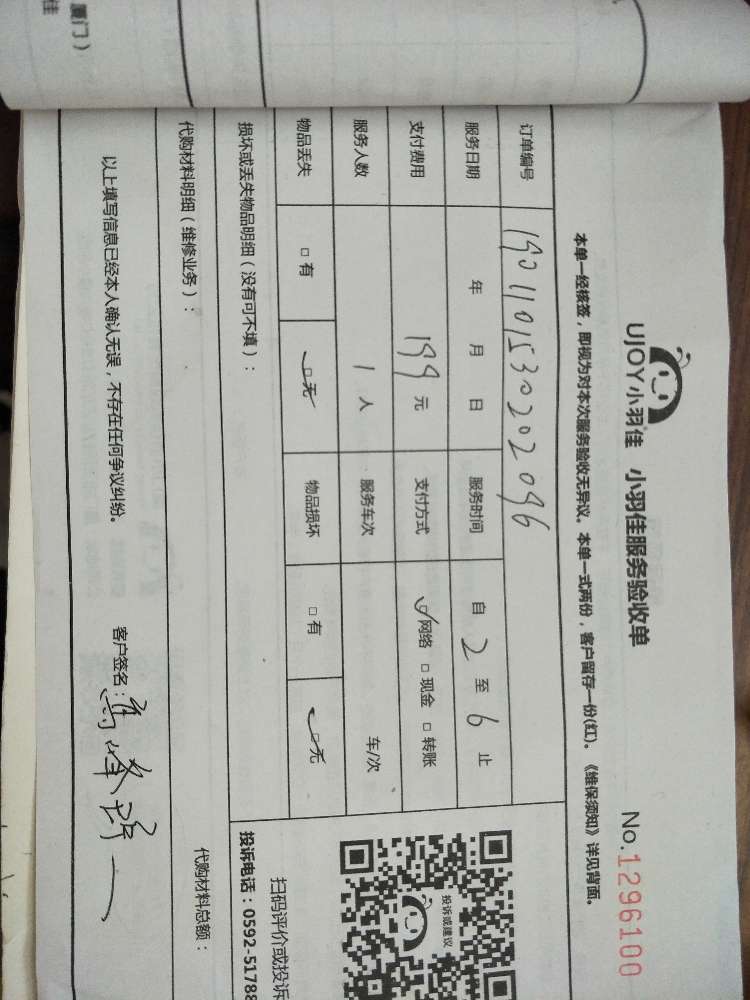 厦门）
佳
UJOY小羽佳 小羽佳服务验收单
No.1296100
本单一经核签，即视为对本次服务验收无异议。本单一式两份，客户留存一份(红)。《维保须知》详见背面。
订单编号 190110153020 2096
服务日期 年 月 日 服务时间 自 2 至 6 止
支付费用 199 元 支付方式 ✓网络 □ 现金 □ 转账
服务人数 1 人 服务车次 车/次
物品丢失 □ 有 □ 无 物品损坏 □ 有 □ 无
损坏或丢失物品明细（没有可不填）：
投诉或建议
扫码评价或投诉
投诉电话：0592-51788
代购材料明细（维修业务）：
代购材料总额：
以上填写信息已经本人确认无误，不存在任何争议纠纷。 客户签名：